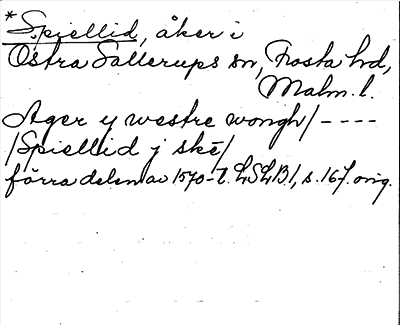 * Spiellid, åker i
Östra Sallerups sn, Frosta hd,
Malm. l.
Ager y westre wongh/ ----
/Spiellid j skē/
förra delen av 1570-t. LSLB1, s. 167. orig.